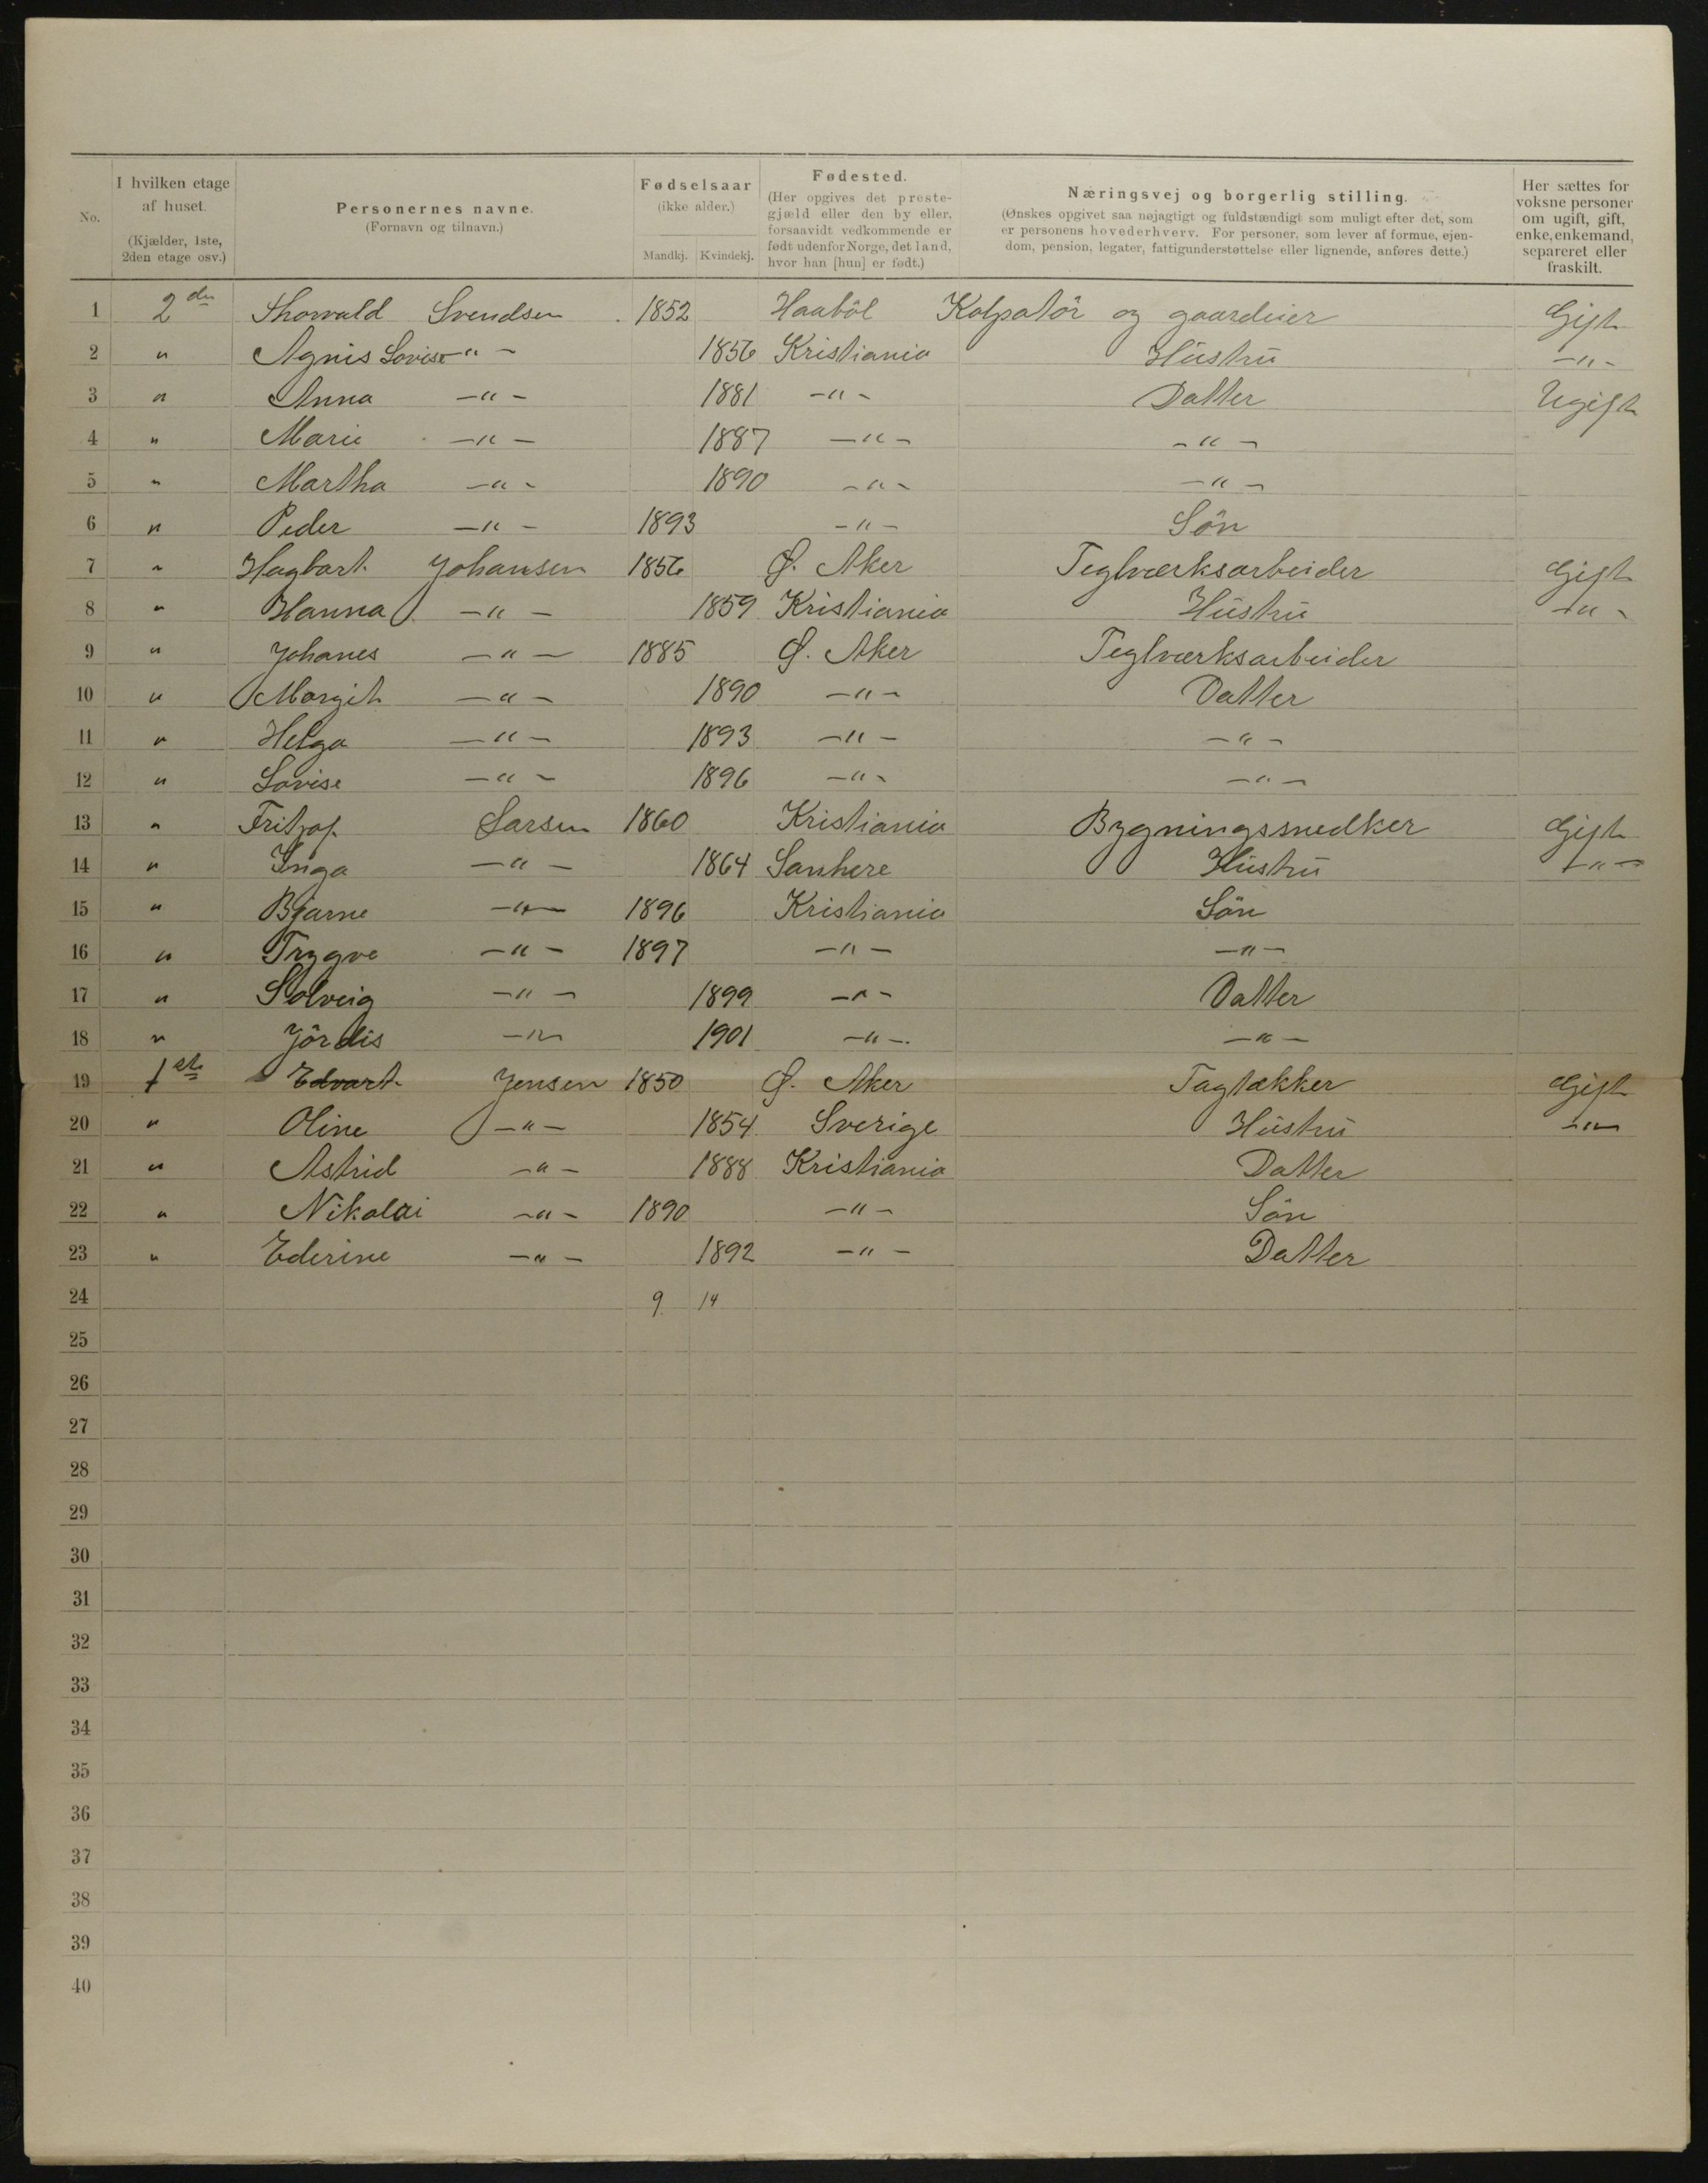 No.
I hvilken etage af huset. (Kjælder, 1ste, 2den etage osv.)
Personernes navne. (Fornavn og tilnavn.)
Fødselsaar (ikke alder.) Mandkj. Kvindekj.
Fødested. (Her opgives det prestegjæld eller den by eller, forsaavidt vedkommende er født udenfor Norge, det land, hvor han [hun] er født.)
Næringsvej og borgerlig stilling. (Ønskes opgivet saa nøjagtigt og fuldstændigt som muligt efter det, som er personens hovederhverv. For personer, som lever af formue, ejendom, pension, legater, fattigunderstøttelse eller lignende, anføres dette.)
Her sættes for voksne personer om ugift, gift, enke, enkemand, separeret eller fraskilt.
1 2den Thorvald Svendsen 1852 Haaböl Kolpatör og gaardeier Gift
2 " Agnis Lovise -"- 1856 Kristiania Hüstrü -"-
3 " Anna -"- 1881 -"- Datter Ugift
4 " Marie -"- 1887 -"- -"-
5 " Martha -"- 1890 -"- -"-
6 " Peder -"- 1893 -"- Sön
7 " Hagbart Johansen 1856 Ø. Aker Teglværksarbeider Gift
8 " Hanna -"- 1859 Kristiania Hüstrü -"-
9 " Johanes -"- 1885 Ø. Aker Teglværksarbeider
10 " Margit -"- 1890 -"- Datter
11 " Helga -"- 1893 -"- -"-
12 " Lovise -"- 1896 -"- -"-
13 " Fritjof Larsen 1860 Kristiania Bygningssnedker Gift
14 " Inga -"- 1864 Sanhere Hüstrü -"-
15 " Bjarne -"- 1896 Kristiania Sön
16 " Trygve -"- 1897 -"- -"-
17 " Solveig -"- 1899 -"- Datter
18 " Jördis -"- 1901 -"- -"-
19 1ste Edvart Jensen 1850 Ø. Aker Tagtækker Gift
20 " Oline -"- 1854 Sverige Hüstrü -"-
21 " Astrid -"- 1888 Kristiania Datter
22 " Nikolai -"- 1890 -"- Sön
23 " Ederine -"- 1892 -"- Datter
24 9 14
25
26
27
28
29
30
31
32
33
34
35
36
37
38
39
40